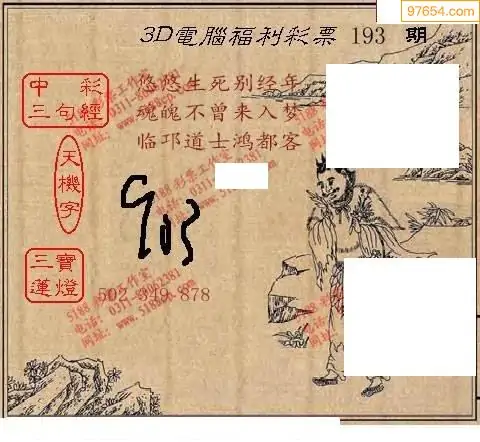 97654.com
3D電腦福利彩票 193 期
中彩
三句經
悠悠生死别经年
魂魄不曾来入梦
临邛道士鸿都客
天機字
903
三寶
蓮燈
502 349 878